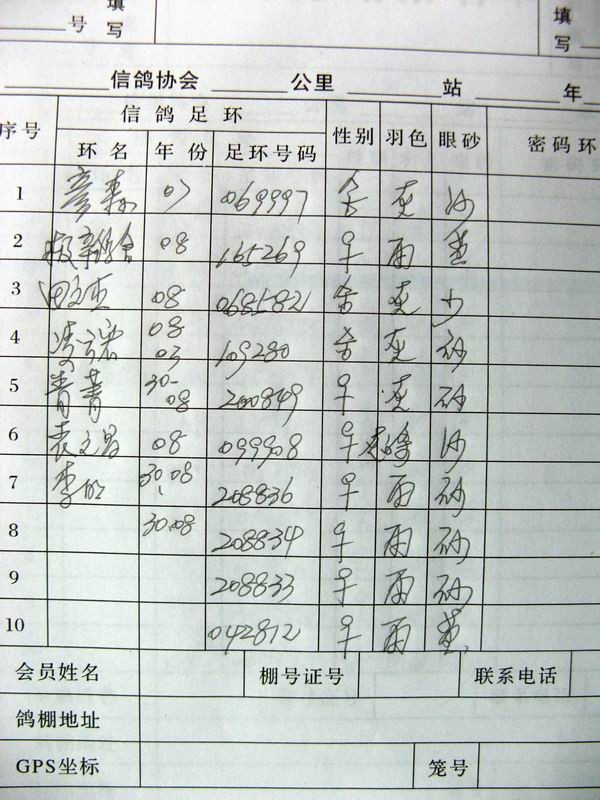 号 填写 填写
信鸽协会 公里 站 年
序号 信鸽足环 性别 羽色 眼砂 密码环
环名 年份 足环号码
1 彦森 07 069997 灰 沙
2 08 165269 ♀ 雨 黄
3 08 0685821 灰 沙
4 08 03 109280 灰 砂
5 菁菁 30-08 200849 ♀ 灰 砂
6 袁文昌 08 099908 ♀ 沙
7 李明 30.08 208836 ♀ 雨 砂
8 30.08 208834 ♀ 雨 砂
9 208833 ♀ 雨 砂
10 042812 ♀ 雨 黄
会员姓名 棚号证号 联系电话
鸽棚地址
GPS坐标 笼号